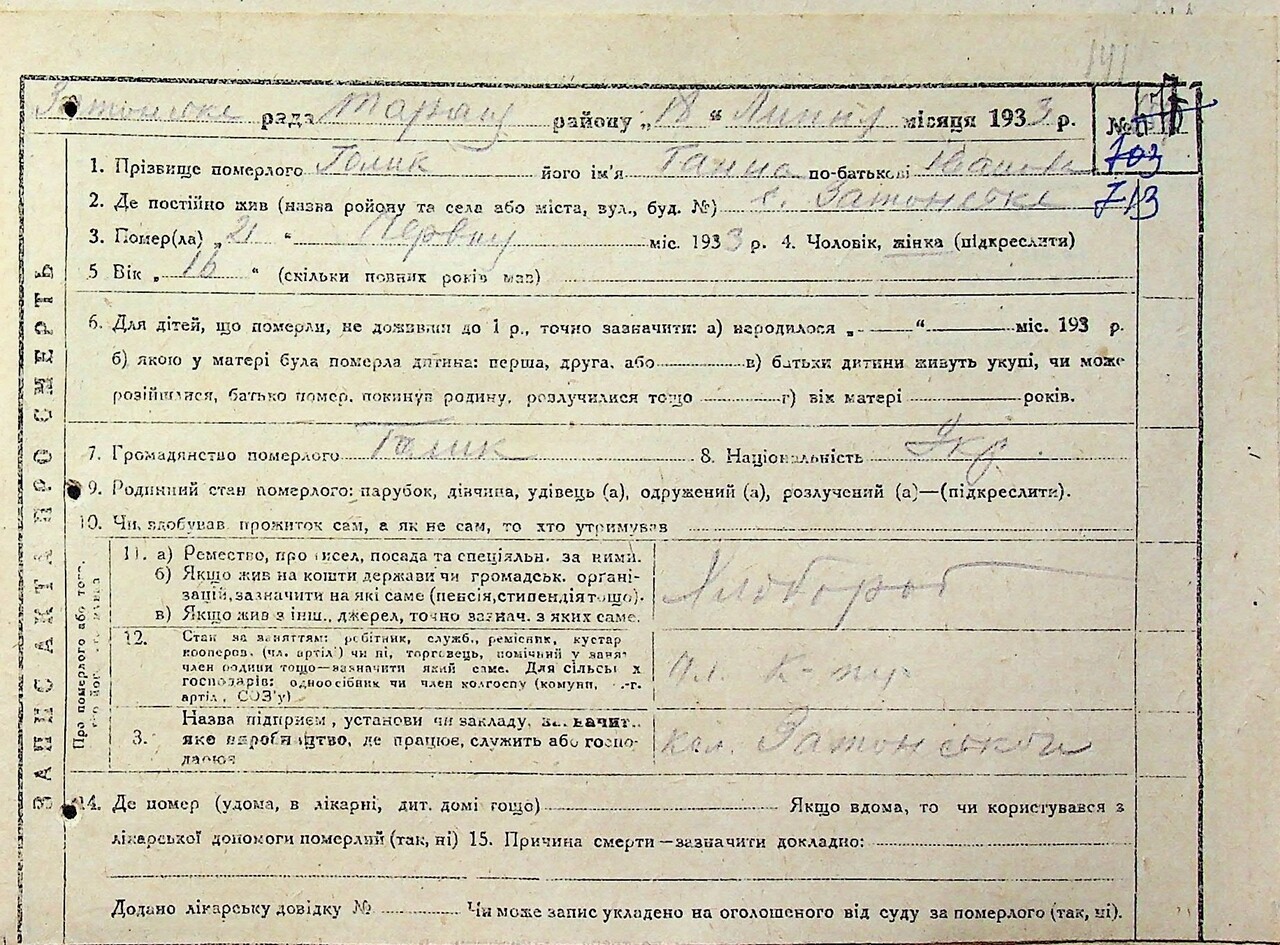 141
Затонське рада Таращ району „18 “ Липня місяця 1933 р.
№
703
713
1. Прізвище померлого Голик його ім'я Ганна по-батькові Іванов
2. Де постійно жив (назва ройону та села або міста, вул., буд. №) с. Затонське
3. Помер(ла) „21 “ Червня міс. 1933 р. 4. Чоловік, жінка (підкреслити)
5 Вік „ 16 “ (скільки повних років мав)
6. Для дітей, що померли, не доживши до 1 р., точно зазначити: а) народилося „ “ міс. 193 р.
б) якою у матері була померла дитина: перша, друга, або в) батьки дитини живуть укупі, чи може
розійшлися, батько помер, покинув родину, розлучилися тощо г) вік матері років.
7. Громадянство померлого Голик 8. Національність Укр.
9. Родинний стан померлого: парубок, дівчина, удівець (а), одружений (а), розлучений (а)—(підкреслити).
10. Чи здобував прожиток сам, а як не сам, то хто утримував
ЗАПИС АКТА ПРО СМЕРТЬ
Про померлого або того,
11. а) Ремество, про исел, посада та спеціяльн. за ними.
б) Якщо жив на кошти держави чи громадськ. орґані-
зацій, зазначити на які саме (пенсія, стипендія тощо).
в) Якщо жив з інш., джерел, точно зазнач. з яких саме.
Хлібороб
12. Стан за заняттям: робітник, служб., ремісник, кустар
кооперов. (чл. артіл ) чи ні, торговець, помічний у заня-
член родини тощо—зазначити який саме. Для сільсь х
господарів: одноосібник чи член колгоспу (комуни, -г.
артіл, СОЗ'у)
Чл. к-пу
3. Назва підприєм, установи чи закладу, за начит
яке виробництво, де працює, служить або госпо-
дарює
кол. Затонської
14. Де помер (удома, в лікарні, дит. домі тощо) Якщо вдома, то чи користувався з
лікарської допомоги померлий (так, ні) 15. Причина смерти—зазначити докладно:
Додано лікарську довідку № Чи може запис укладено на оголошеного від суду за померлого (так, ні).